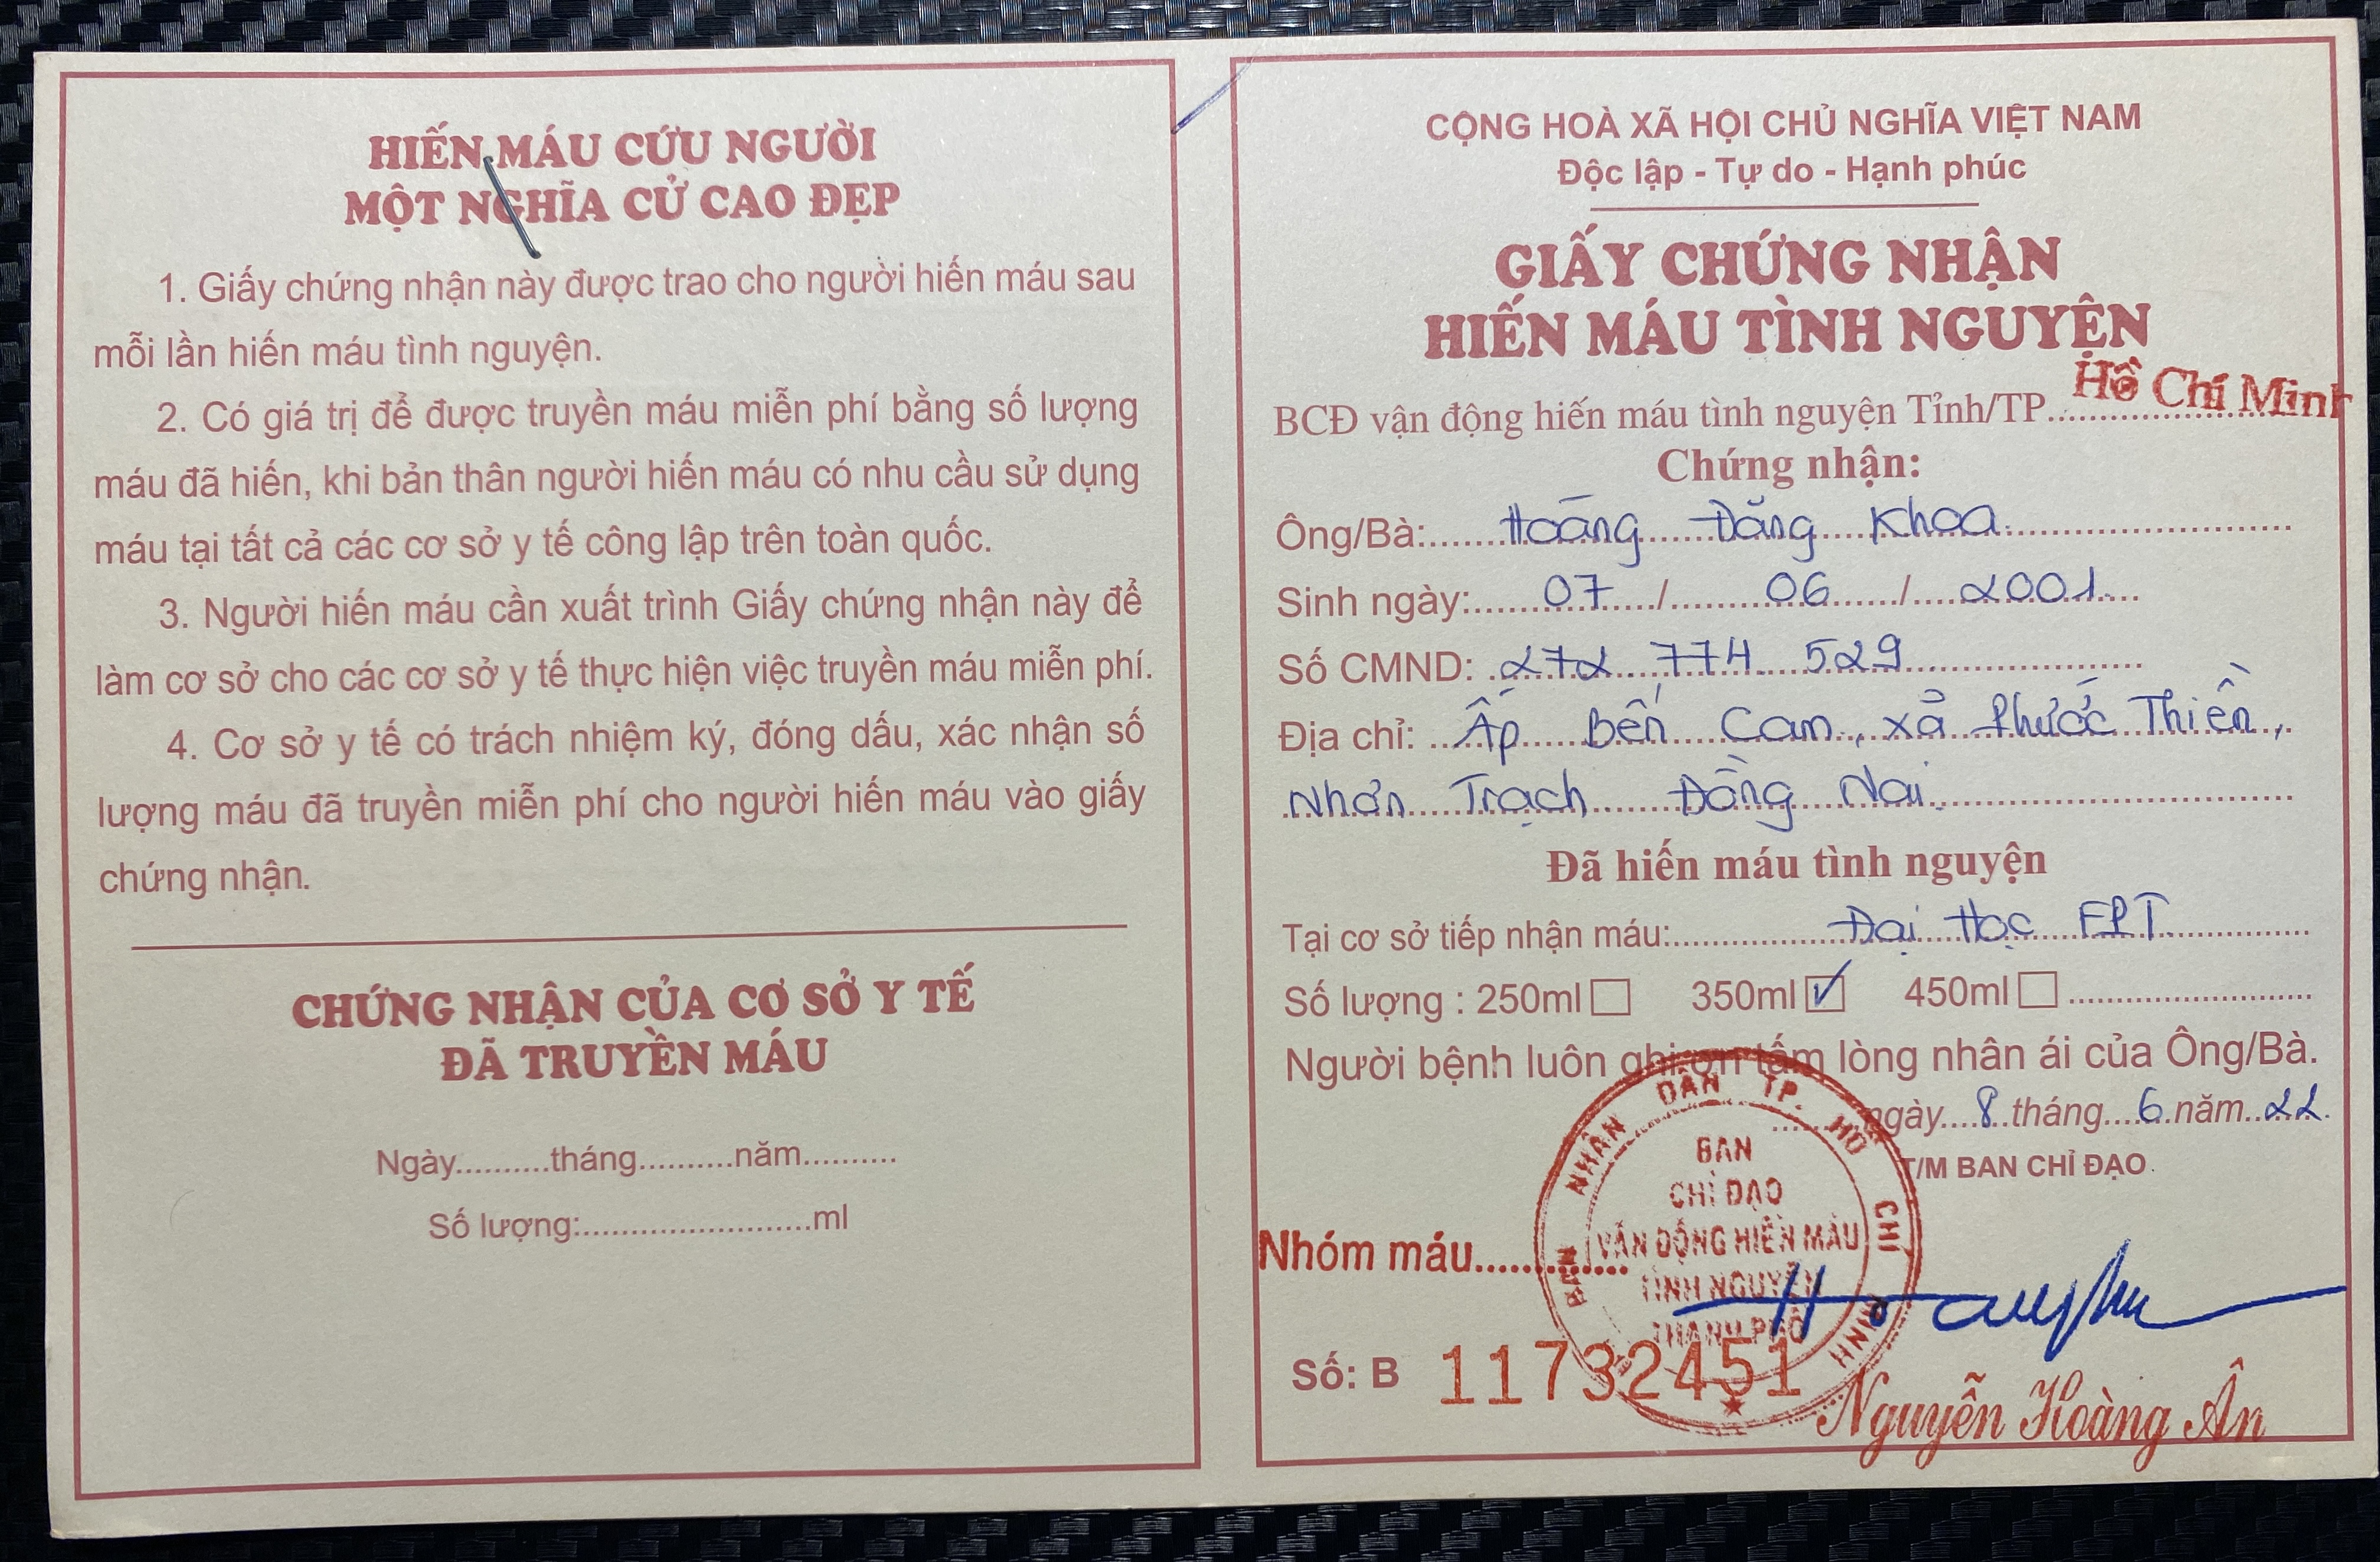 HIẾN MÁU CỨU NGƯỜI
MỘT NGHĨA CỬ CAO ĐẸP
1. Giấy chứng nhận này được trao cho người hiến máu sau
mỗi lần hiến máu tình nguyện.
2. Có giá trị để được truyền máu miễn phí bằng số lượng
máu đã hiến, khi bản thân người hiến máu có nhu cầu sử dụng
máu tại tất cả các cơ sở y tế công lập trên toàn quốc.
3. Người hiến máu cần xuất trình Giấy chứng nhận này để
làm cơ sở cho các cơ sở y tế thực hiện việc truyền máu miễn phí.
4. Cơ sở y tế có trách nhiệm ký, đóng dấu, xác nhận số
lượng máu đã truyền miễn phí cho người hiến máu vào giấy
chứng nhận.
CHỨNG NHẬN CỦA CƠ SỞ Y TẾ
ĐÃ TRUYỀN MÁU
Ngày..........tháng..........năm..........
Số lượng:.........................ml
CỘNG HOÀ XÃ HỘI CHỦ NGHĨA VIỆT NAM
Độc lập - Tự do - Hạnh phúc
GIẤY CHỨNG NHẬN
HIẾN MÁU TÌNH NGUYỆN
BCĐ vận động hiến máu tình nguyện Tỉnh/TP Hồ Chí Minh
Chứng nhận:
Ông/Bà: Hoàng Đăng Khoa
Sinh ngày: 07 / 06 / 2001
Số CMND: 272 774 529
Địa chỉ: Ấp Bến Cam, xã Phước Thiền,
Nhơn Trạch Đồng Nai
Đã hiến máu tình nguyện
Tại cơ sở tiếp nhận máu: Đại Học FPT
Số lượng : 250ml 350ml ✓ 450ml
Người bệnh luôn ghi ơn tấm lòng nhân ái của Ông/Bà.
ngày 8 tháng 6 năm 22
T/M BAN CHỈ ĐẠO
BAN NHÂN DÂN TP. HỒ CHÍ MINH
BAN
CHỈ ĐẠO
VẬN ĐỘNG HIẾN MÁU
TÌNH NGUYỆN
THÀNH PHỐ
Nhóm máu.............
Số: B 11732451
Nguyễn Hoàng Ân